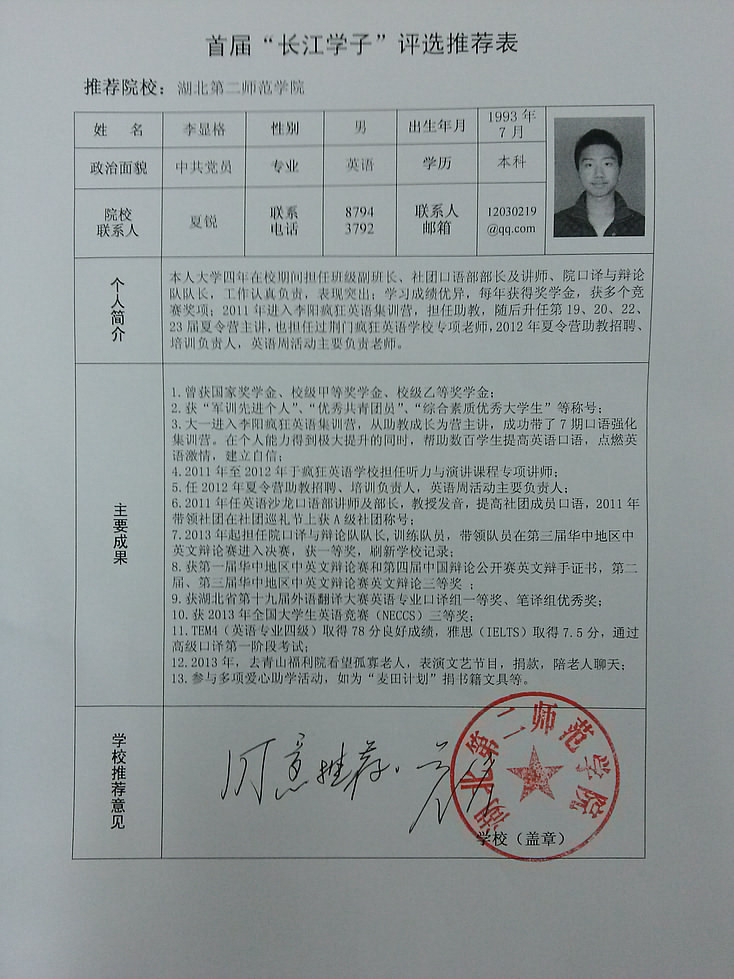 首届“长江学子”评选推荐表
推荐院校：湖北第二师范学院
姓 名 李显格 性别 男 出生年月 1993 年
7 月
政治面貌 中共党员 专业 英语 学历 本科
院校
联系人 夏锐 联系
电话 8794
3792 联系人
邮箱 12030219
@qq.com
个人简介
本人大学四年在校期间担任班级副班长、社团口语部部长及讲师、院口译与辩论
队队长，工作认真负责，表现突出；学习成绩优异，每年获得奖学金，获多个竞
赛奖项；2011 年进入李阳疯狂英语集训营，担任助教，随后升任第 19、20、22、
23 届夏令营主讲，也担任过荆门疯狂英语学校专项老师，2012 年夏令营助教招聘、
培训负责人，英语周活动主要负责老师。
主要成果
1. 曾获国家奖学金、校级甲等奖学金、校级乙等奖学金；
2. 获“军训先进个人”、“优秀共青团员”、“综合素质优秀大学生”等称号；
3. 大一进入李阳疯狂英语集训营，从助教成长为营主讲，成功带了 7 期口语强化
集训营。在个人能力得到极大提升的同时，帮助数百学生提高英语口语，点燃英
语激情，建立自信；
4. 2011 年至 2012 年于疯狂英语学校担任听力与演讲课程专项讲师；
5. 任 2012 年夏令营助教招聘、培训负责人，英语周活动主要负责人；
6. 2011 年任英语沙龙口语部讲师及部长，教授发音，提高社团成员口语，2011 年
带领社团在社团巡礼节上获 A 级社团称号；
7. 2013 年起担任院口译与辩论队队长,训练队员，带领队员在第三届华中地区中
英文辩论赛进入决赛，获一等奖，刷新学校记录；
8. 获第一届华中地区中英文辩论赛和第四届中国辩论公开赛英文辩手证书，第二
届、第三届华中地区中英文辩论赛英文辩论三等奖 ；
9. 获湖北省第十九届外语翻译大赛英语专业口译组一等奖、笔译组优秀奖；
10. 获 2013 年全国大学生英语竞赛（NECCS）三等奖；
11. TEM4（英语专业四级）取得 78 分良好成绩，雅思（IELTS）取得 7.5 分，通过
高级口译第一阶段考试；
12. 2013 年，去青山福利院看望孤寡老人，表演文艺节目，捐款，陪老人聊天；
13. 参与多项爱心助学活动，如为“麦田计划”捐书籍文具等。
学校推荐意见
同意推荐.
湖北第二师范学院
学校（盖章）